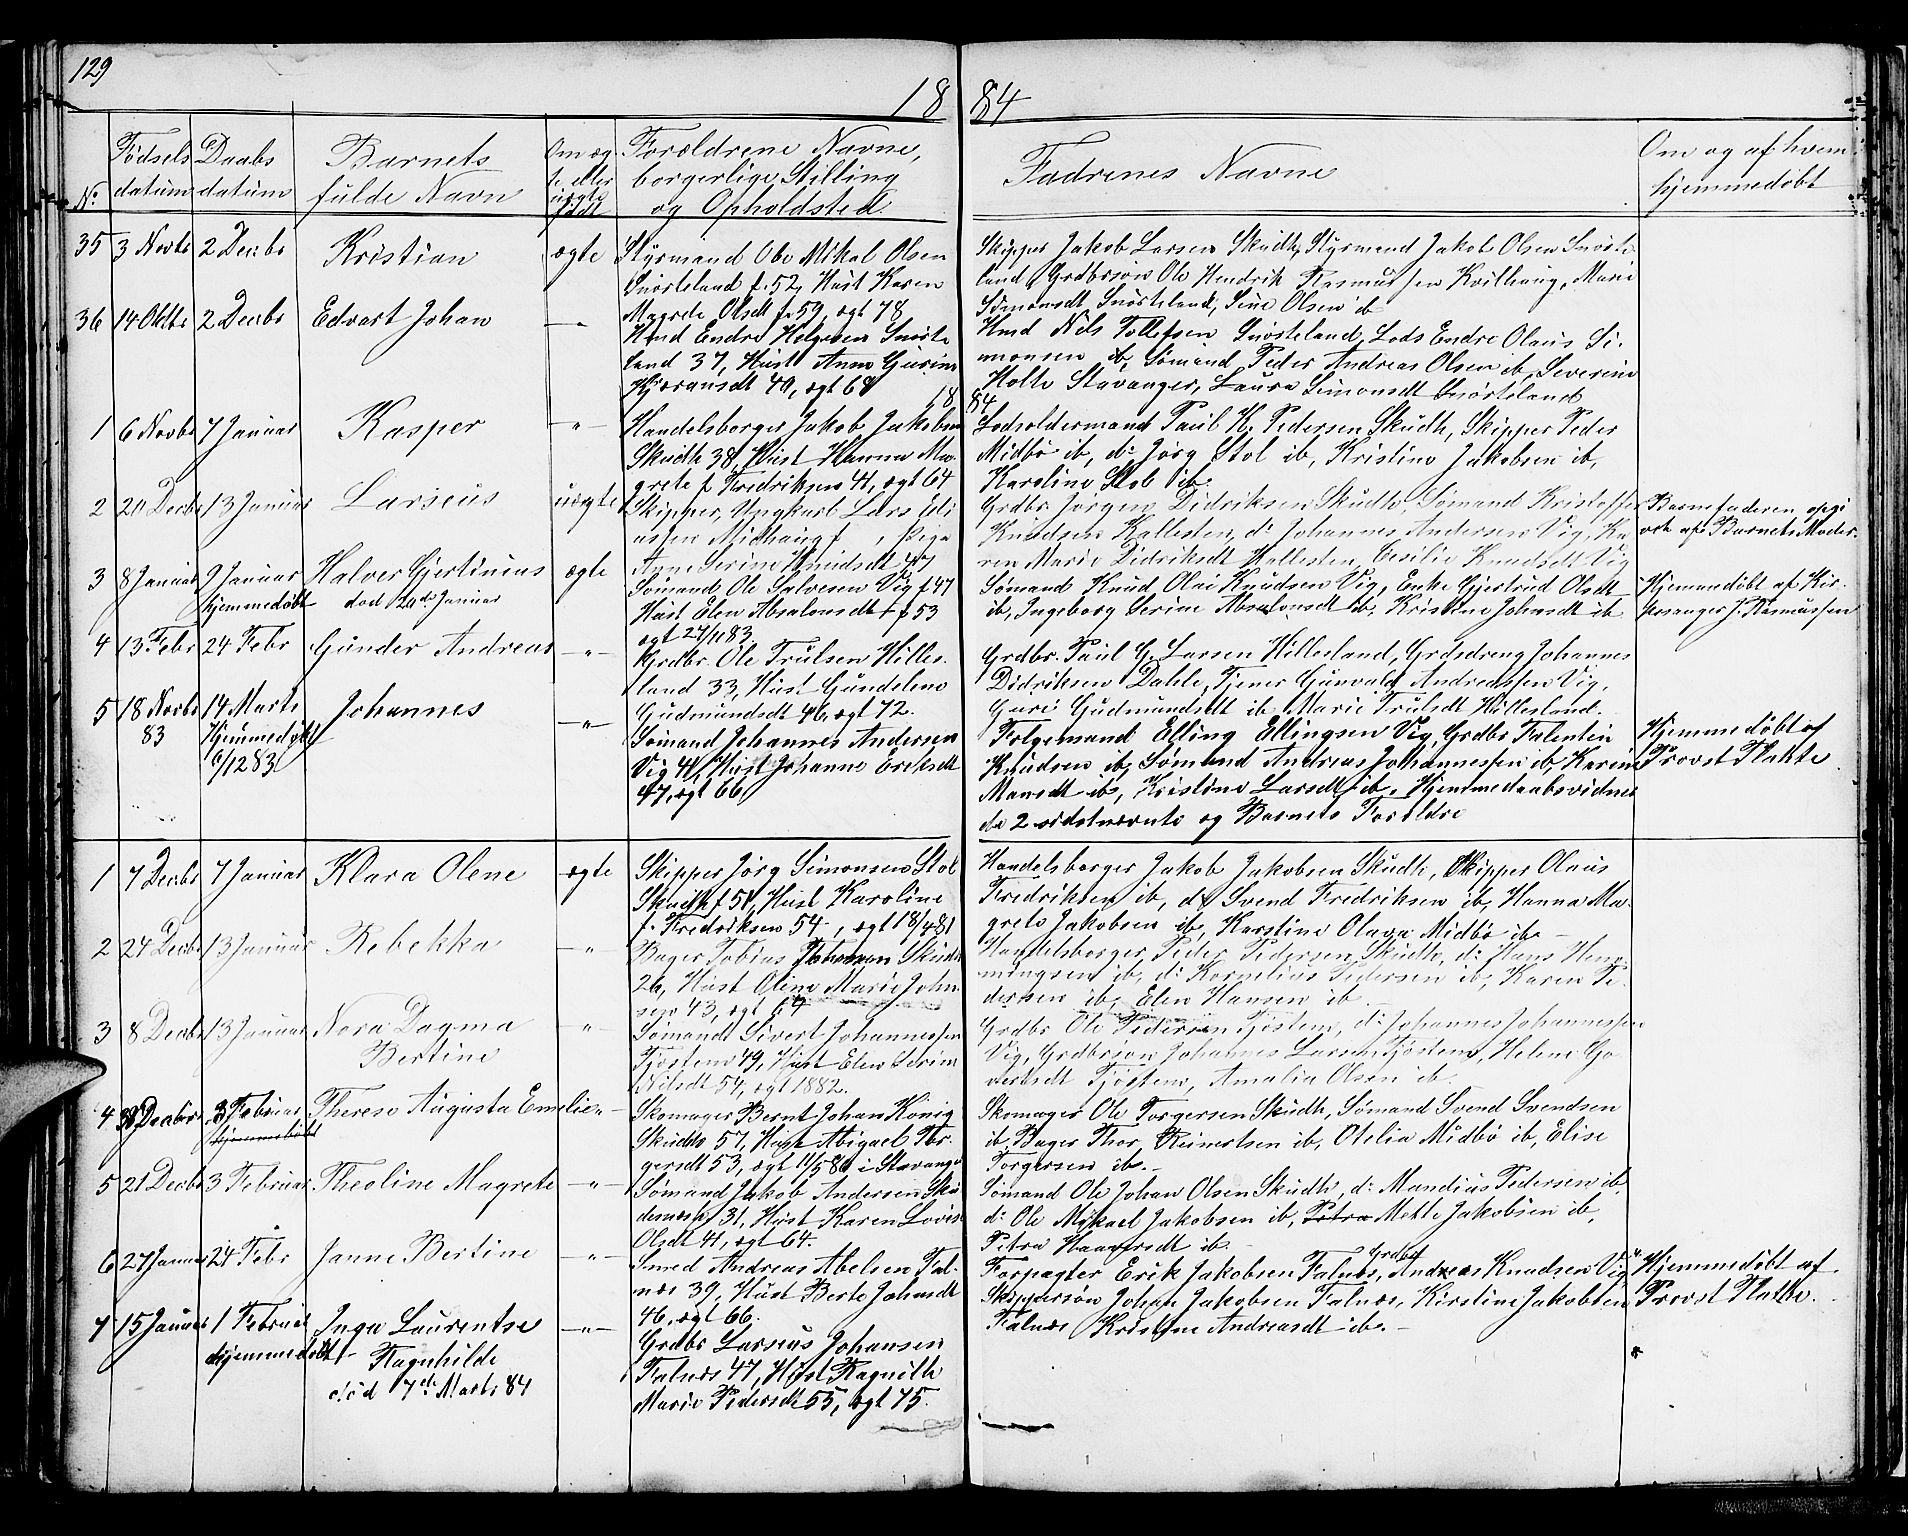 129
18 84
No.
Fødsels
datum
Daabs
datum
Barnets
fulde Navn
Om æg
te eller
uægte
født
Forældrene Navne,
borgerlige Stilling
og Opholdsted.
Fadrenes Navne
Om og af hvem
hjemmedøbt
35 3 Novbr 2 Decbr Kristian ægte
Styrmand Ole Mikal Olsen
Snørteland f. 52, Hust Karen
Magrete Olsdt f. 59, ægt 78
Skipper Jakob Larsen Skudh, Styrmand Jakob Olsen Snørte
land, Grdbrsøn Ole Hendrik Rasmussen Kvilhaug, Marie
Simonsdt Snørteland, Sine Olsen ib
36 14 Oktbr 2 Decbr Edvart Johan —"—
Hmd Endre Helgesen Snørte
land 37, Hust Anna Gurine
Gjøransdt 40, ægt 68
Hmd Nils Tollefsen Snørteland, Lods Endre Olaus Si-
monsen ib, Sømand Peder Andreas Olsen ib, Severine
Holte Stavanger, Laura Simonsdt Snørteland
18 84
1 6 Novbr 7 Januar Kasper —"—
Handelsborger Jakob Jakobsen
Skudh 38, Hust Hanna Ma-
grete f Fredriksen 41, ægt 64
Lodsoldermand Paul H. Pedersen Skudh, Skipper Peder
Midbø ib, d: Jørg Stol ib, Kristine Jakobsen ib,
Karoline Stol ib.
2 20 Decbr 13 Januar Larseus uægte
Skipper, Ungkarl Lars Eli
assen Midhaug f , Pige
Anne Serine Knudsdt 47
Grdbr. Jørgen Didriksen Skudh, Sømand Kristoffer
Knudsen Hallesten, d: Johannes Andersen Vig, Ka
ren Marie Didriksdt Hallesten, Cesilie Knudsdt Vig
Barnefaderen opgi
vet af Barnets Moder.
3 8 Januar 9 Januar Halver Gjertinius ægte
hjemmedøbt død 20de Januar
Sømand Ole Salvesen Vig f 47
Hust Elen Absalonsdt f 53
ægt 27/11 83.
Sømand Knud Olai Knudsen Vig, Enke Gjertrud Olsdt
ib, Ingeborg Serine Absalonsdt ib, Kristine Johnsdt ib
Hjemmedøbt af Kir-
kesanger J. Rasmussen
4 13 Febr 24 Febr Gunder Andreas —"—
Grdbr. Ole Trulsen Hilles-
land 33, Hust Gundelene
Gudmundsdt 46, ægt 72.
Grdbr. Paul G. Larsen Hillesland, Grdsdreng Johannes
Didriksen Dalele, Tjener Gunvald Andreassen Vig,
Guri Gudmundsdt ib, Marie Trulsdt Hillesland.
5 18 Novbr 14 Marts Johannes —"—
83 Hjemmedøbt
6/12 83
Sømand Johannes Andersen
Vig 41, Hust Johanne Eriksdt
47, ægt 66
Følgemand Elling Ellingsen Vig, Grdbr Falentin
Knudsen ib, Sømand Andreas Johannessen ib, Karine
Mansdt ib, Kristine Larsdt ib. Hjemmedaabsvidner
de 2 sidstnævnte og Barnets Foreldre
Hjemmedøbt af
Provst Flakte
1 7 Decbr 7 Januar Klara Olene ægte
Skipper Jørg Simonsen Stol
Skudh f 51, Hust Karoline
f. Fredriksen 54, ægt 18/4 81
Handelsborger Jakob Jakobsen Skudh, Skipper Olaus
Fredriksen ib, d: Svend Fredriksen ib, Hanna Ma-
grete Jakobsen ib, Karstine Olava Midbø ib.
2 24 Decbr 13 Januar Rebekka —"—
Bager Tobias Johnsen Skudh
26, Hust Oline Marie John
sen 43, ægt 64
Handelsborger Peder Pedersen Skudh, d: Hans Hem-
mingsen ib, d: Kornelius Pedersen ib, Karen Pe-
dersen ib, Elen Hansen ib.
3 8 Decbr 13 Januar Nora Dagma —"—
Bertine
Sømand Sivert Johannessen
Tjøstem 49, Hust Elen Serine
Nilsdt 54, ægt 1882.
Grdbr Ole Pedersen Tjøstem, d: Johannes Johannessen
Vig, Grdbrsøn Johannes Larsen Tjøstem, Helene Go-
vertsdt Tjøstem, Amalia Olsen ib.
4 Decbr 3 Februar Therese Augusta Emelie —"—
Hjemmedøbt
Skomager Bernt Johan König
Skudh 57, Hust Abigael Tor-
gersdt 53, ægt 11/5 80 i Stavanger
Skomager Ole Torgersen Skudh, Sømand Svend Svendsen
ib, Bager Thor Reinertsen ib, Otelia Midbø ib, Elise
Torgersen ib.
5 21 Decbr 3 Februar Theoline Magrete —"—
Sømand Jakob Andersen Sku
desnæsh 31, Hust Karen Lovise
Olsdt 41, ægt 64.
Sømand Ole Johan Olsen Skudh, d: Mandius Pedersen ib,
d: Ole Mikael Jakobsen ib, Petra Mette Jakobsen ib,
Petra Haagersdt ib.
6 27 Januar 24 Febr Janne Bertine —"—
Smed Andreas Abelsen Fal-
næs 39, Hust Berte Johnsdt
46, ægt 66.
Grdbr
Forpagter Erik Jakobsen Falnæs, Andreas Knudsen Vig
Skippersøn Johan Jakobsen Falnæs, Kirstine Jakobsen
Falnæs Kristine Andreasdt ib.
Hjemmedøbt af
Provst Flatte.
7 15 Januar 1 Februar Inga Laurentse —"—
Hjemmedøbt Ragnhilde
død 7de Marts 84
Grdbr Larseus Johansen
Falnæs 47, Hust Ragnilde
Marie Pedersdt 55, ægt 75.